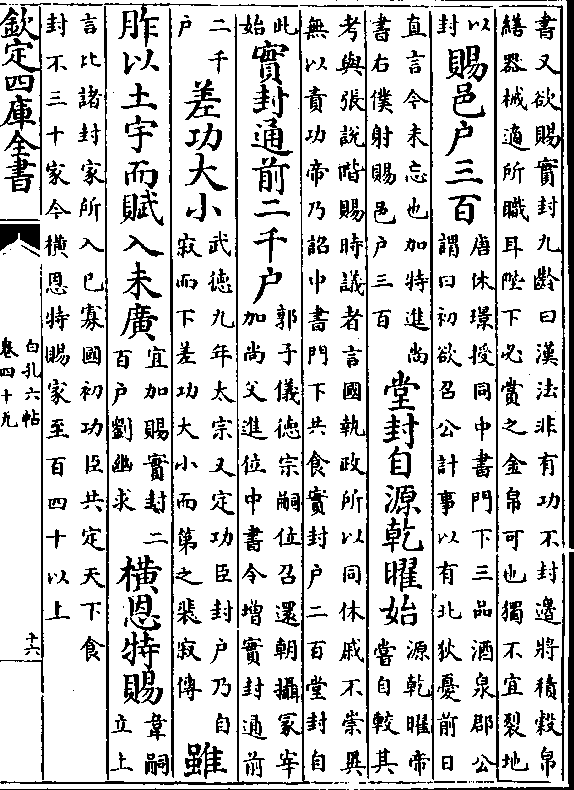 書又欲賜實封九齡曰漢法非有功不封邊將積穀帛
繕器械適所職耳陛下必賞之金帛可也獨不宜裂地
以
封
賜邑户三百
唐休璟授同中書門下三品酒泉郡公
謂曰初欲召公計事以有北狄憂前日
直言今未忘也加特進尚
書右僕射賜邑户三百
堂封自源乾曜始
源乾曜帝
嘗自較其
考與張說階賜時議者言國執政所以同休戚不崇異
無以責功帝乃詔中書門下共食實封户二百堂封自
此
始
實封通前二千户
郭子儀德宗嗣位召還朝攝冢宰
加尚父進位中書令增實封通前
二千
户
差功大小
武德九年太宗又定功臣封户乃自
寂而下差功大小而第之裴寂傳
雖
胙以土宇而賦入未廣
宜加賜實封二
百户劉幽求
橫恩特賜
韋嗣
立上
言比諸封家所入已寡國初功臣共定天下食
封不三十家今橫恩特賜家至百四十以上
欽定四庫全書
白孔六帖
卷四十九
十六